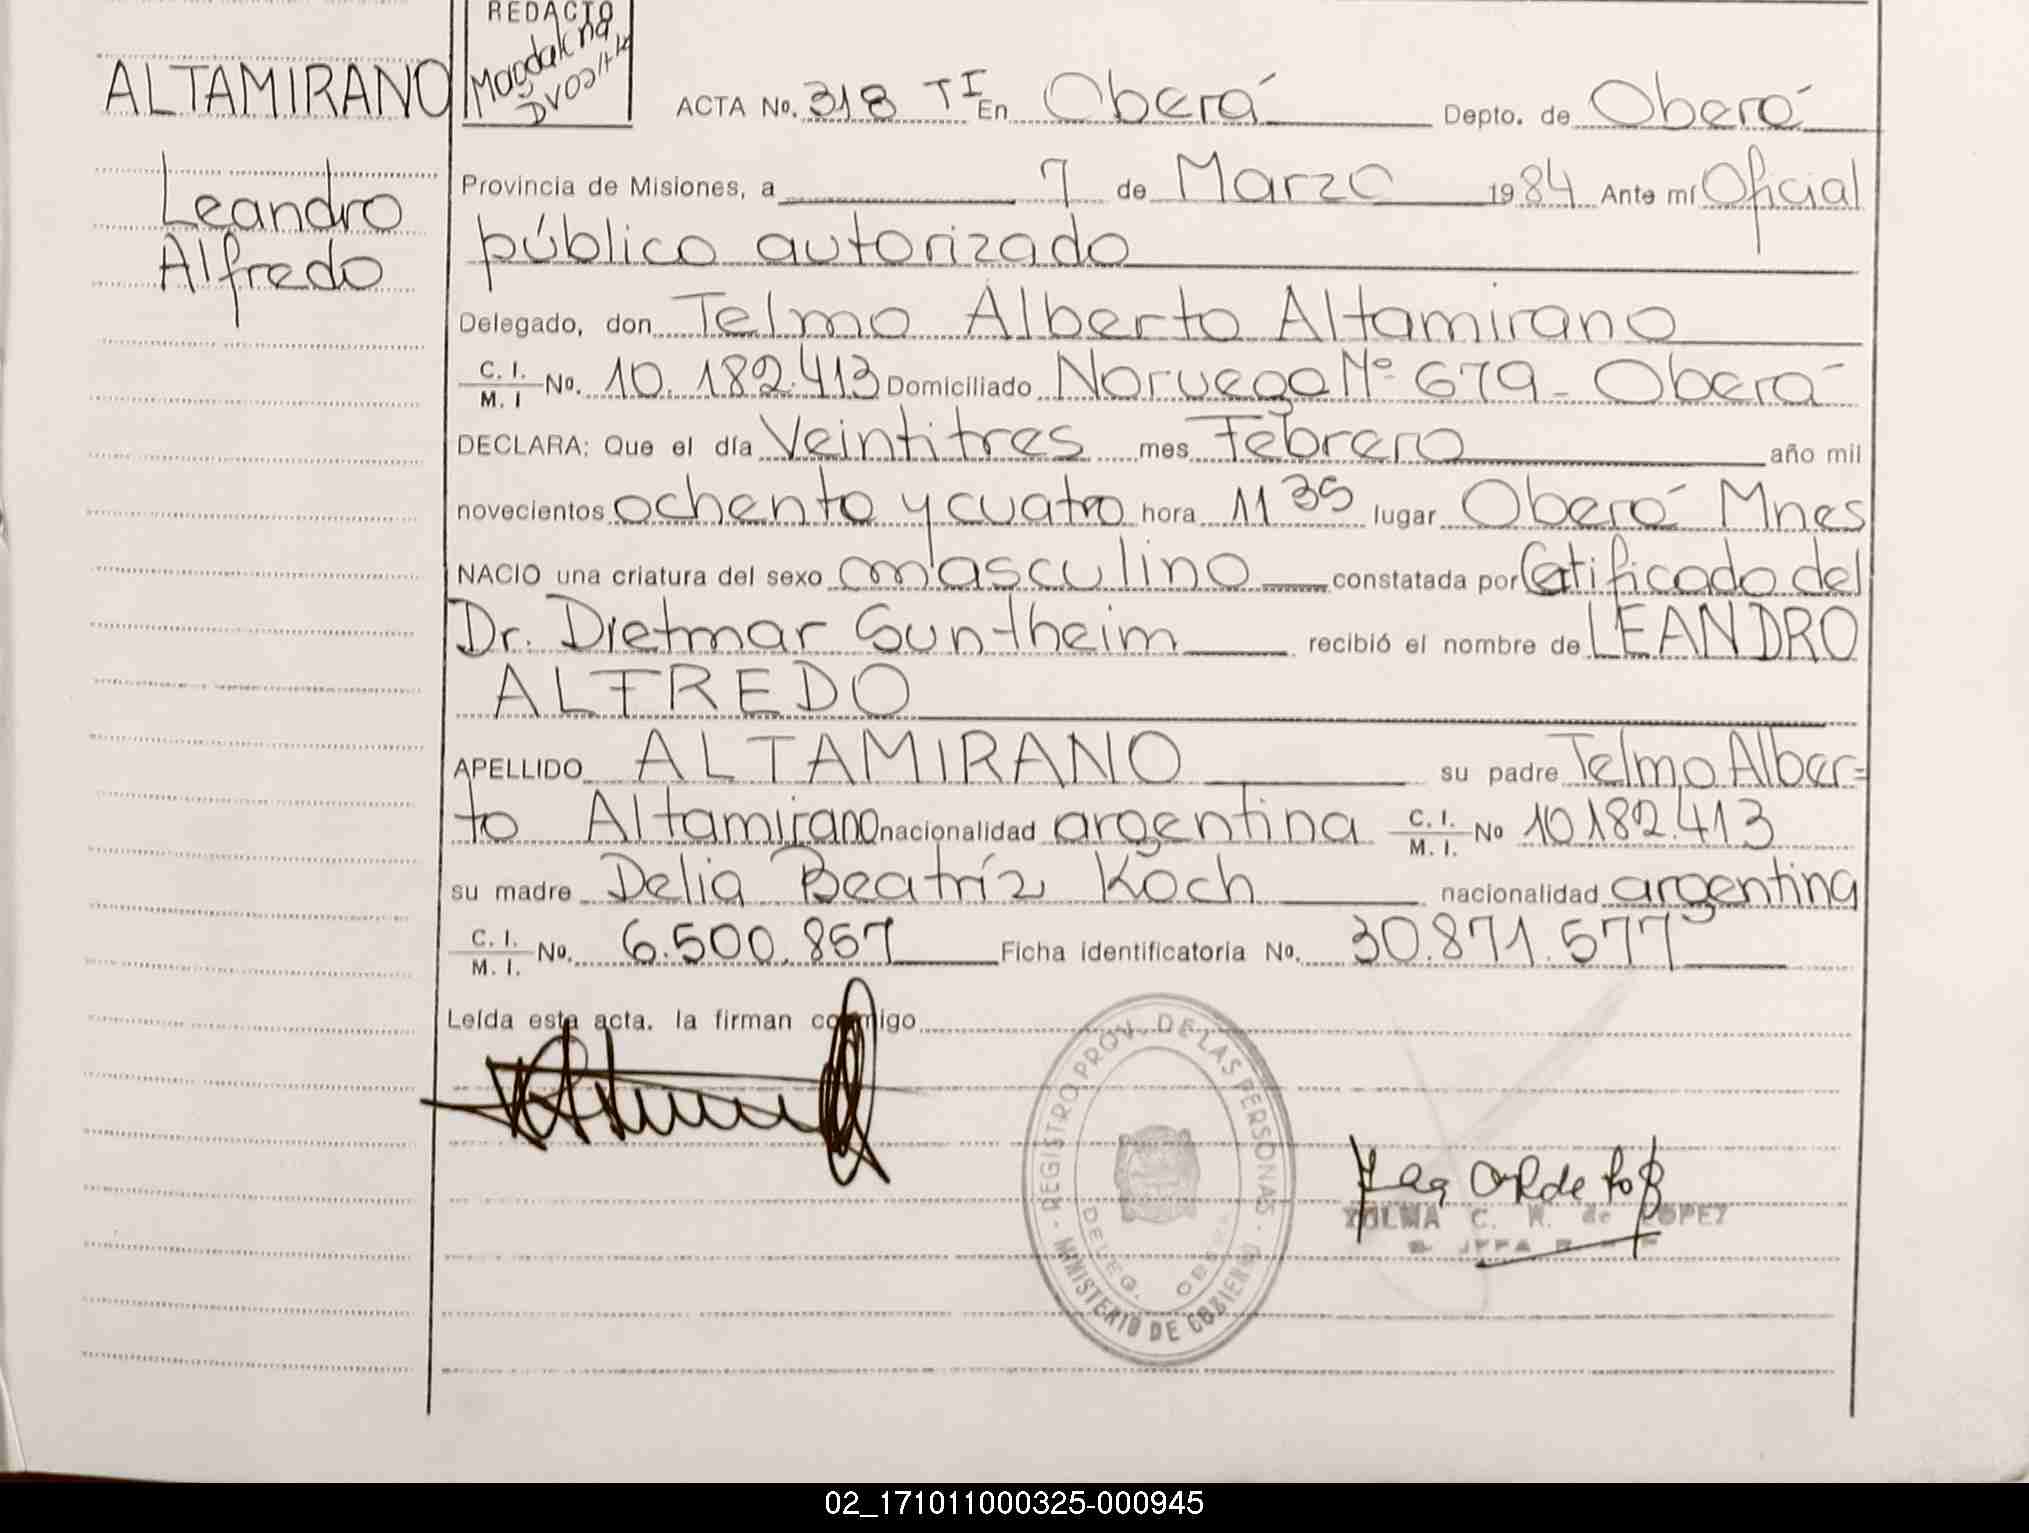 REDACTO
Magdalena
ALTAMIRANO
Leandro
Alfredo
ACTA No. 318 TI En Oberá Depto. de Oberá
Provincia de Misiones, a 7 de Marzo 1984 Ante mí Oficial
público autorizado
Delegado, don Telmo Alberto Altamirano
C. I. / M. I No. 10.182.413 Domiciliado Noruega Nº 679 - Oberá
DECLARA: Que el día Veintitres mes Febrero año mil
novecientos ochenta y cuatro hora 11 35 lugar Oberá Mnes
NACIO una criatura del sexo masculino constatada por Certificado del
Dr. Dietmar Suntheim recibió el nombre de LEANDRO
ALFREDO
APELLIDO ALTAMIRANO su padre Telmo Alber=
to Altamirano nacionalidad argentina C. I. / M. I. No 10.182.413
su madre Delia Beatríz Koch nacionalidad argentina
C. I. / M. I. No. 6.500.857 Ficha identificatoria No. 30.871.577
Leída esta acta. la firman conmigo
REGISTRO PROV. DE LAS PERSONAS
DELEG. OBERA
MINISTERIO DE GOBIERNO
C. R. de LOPEZ
02_171011000325-000945